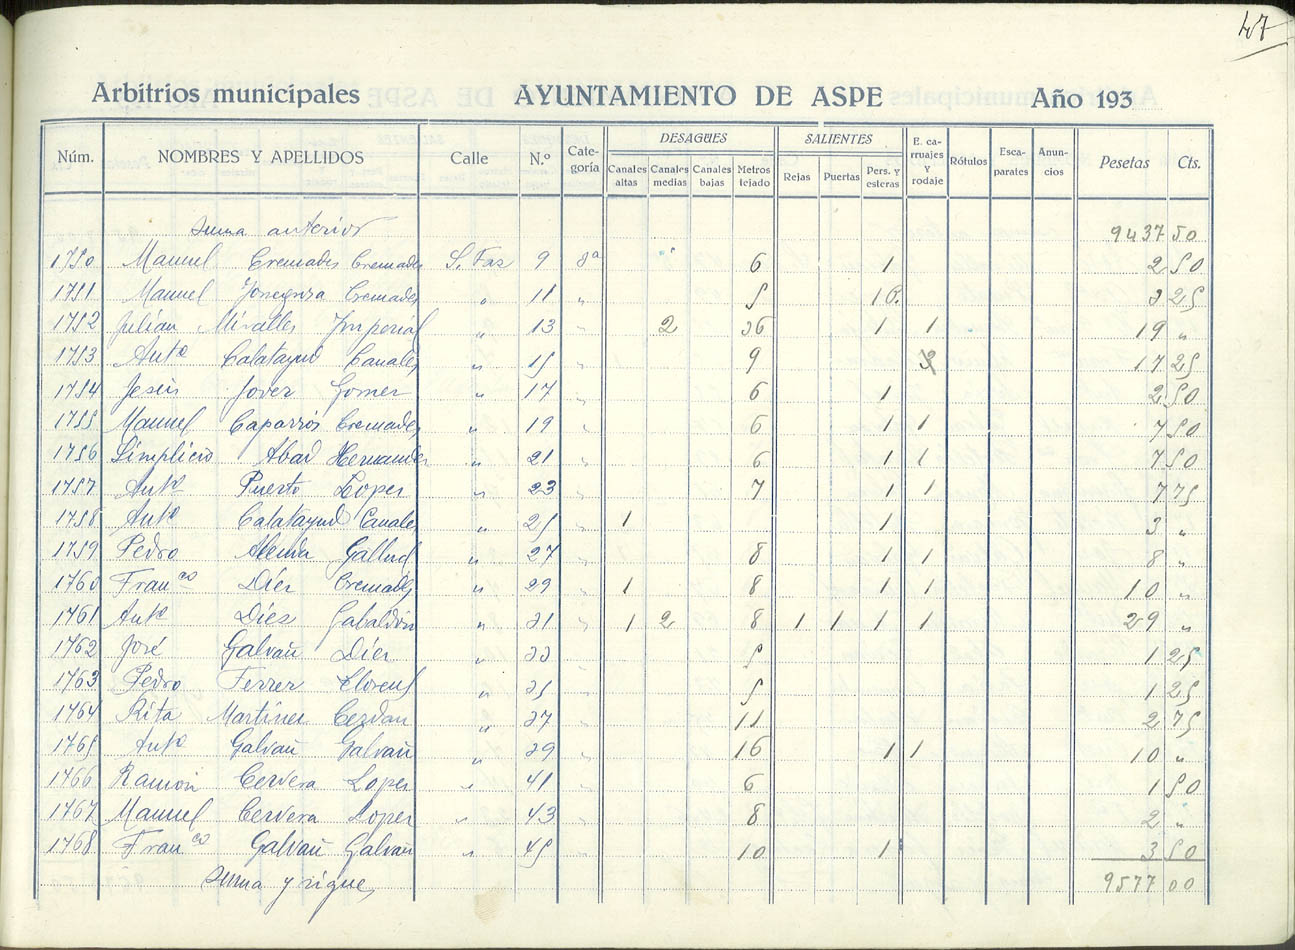 47
Arbitrios municipales AYUNTAMIENTO DE ASPE Año 193
Núm. NOMBRES Y APELLIDOS Calle N.º Cate-goría DESAGÜES Canales altas Canales medias Canales bajas Metros tejado SALIENTES Rejas Puertas Pers. y esteras E. ca-rruajes y rodaje Rótulos Esca-parates Anun-cios Pesetas Cts.
Suma anterior 9437 50
1750 Manuel Cremades Cremades S. Faz 9 8ª 6 1 2 50
1751 Manuel Cremades " 11 " 5 1 3 25
1752 Julián Miralles Imperial " 13 " 2 36 1 1 19 "
1753 Antº Calatayud Canales " 15 " 9 3 17 25
1754 Jesús Jover Gomez " 17 " 6 1 2 50
1755 Manuel Caparrós Cremades " 19 " 6 1 1 7 50
1756 Simplicio Abad Hernandez " 21 " 6 1 1 7 50
1757 Antº Puerto Lopez " 23 " 7 1 1 7 75
1758 Antº Calatayud Canales " 25 " 1 1 3 "
1759 Pedro Alenda Gallud " 27 " 8 1 1 8 "
1760 Franco Díez Cremades " 29 " 1 8 1 1 10 "
1761 Antº Díez Gabaldón " 31 " 1 2 8 1 1 1 1 29 "
1762 José Galvañ Díez " 33 " 5 1 25
1763 Pedro Ferrer Llorens " 35 " 5 1 25
1764 Rita Martínez Cerdan " 37 " 11 2 75
1765 Antº Galvañ Galvañ " 39 " 16 1 1 10 "
1766 Ramón Cervera Lopez " 41 " 6 1 50
1767 Manuel Cervera Lopez " 43 " 8 2 "
1768 Franco Galvañ Galvañ " 45 " 10 1 3 50
Suma y sigue, 9577 00